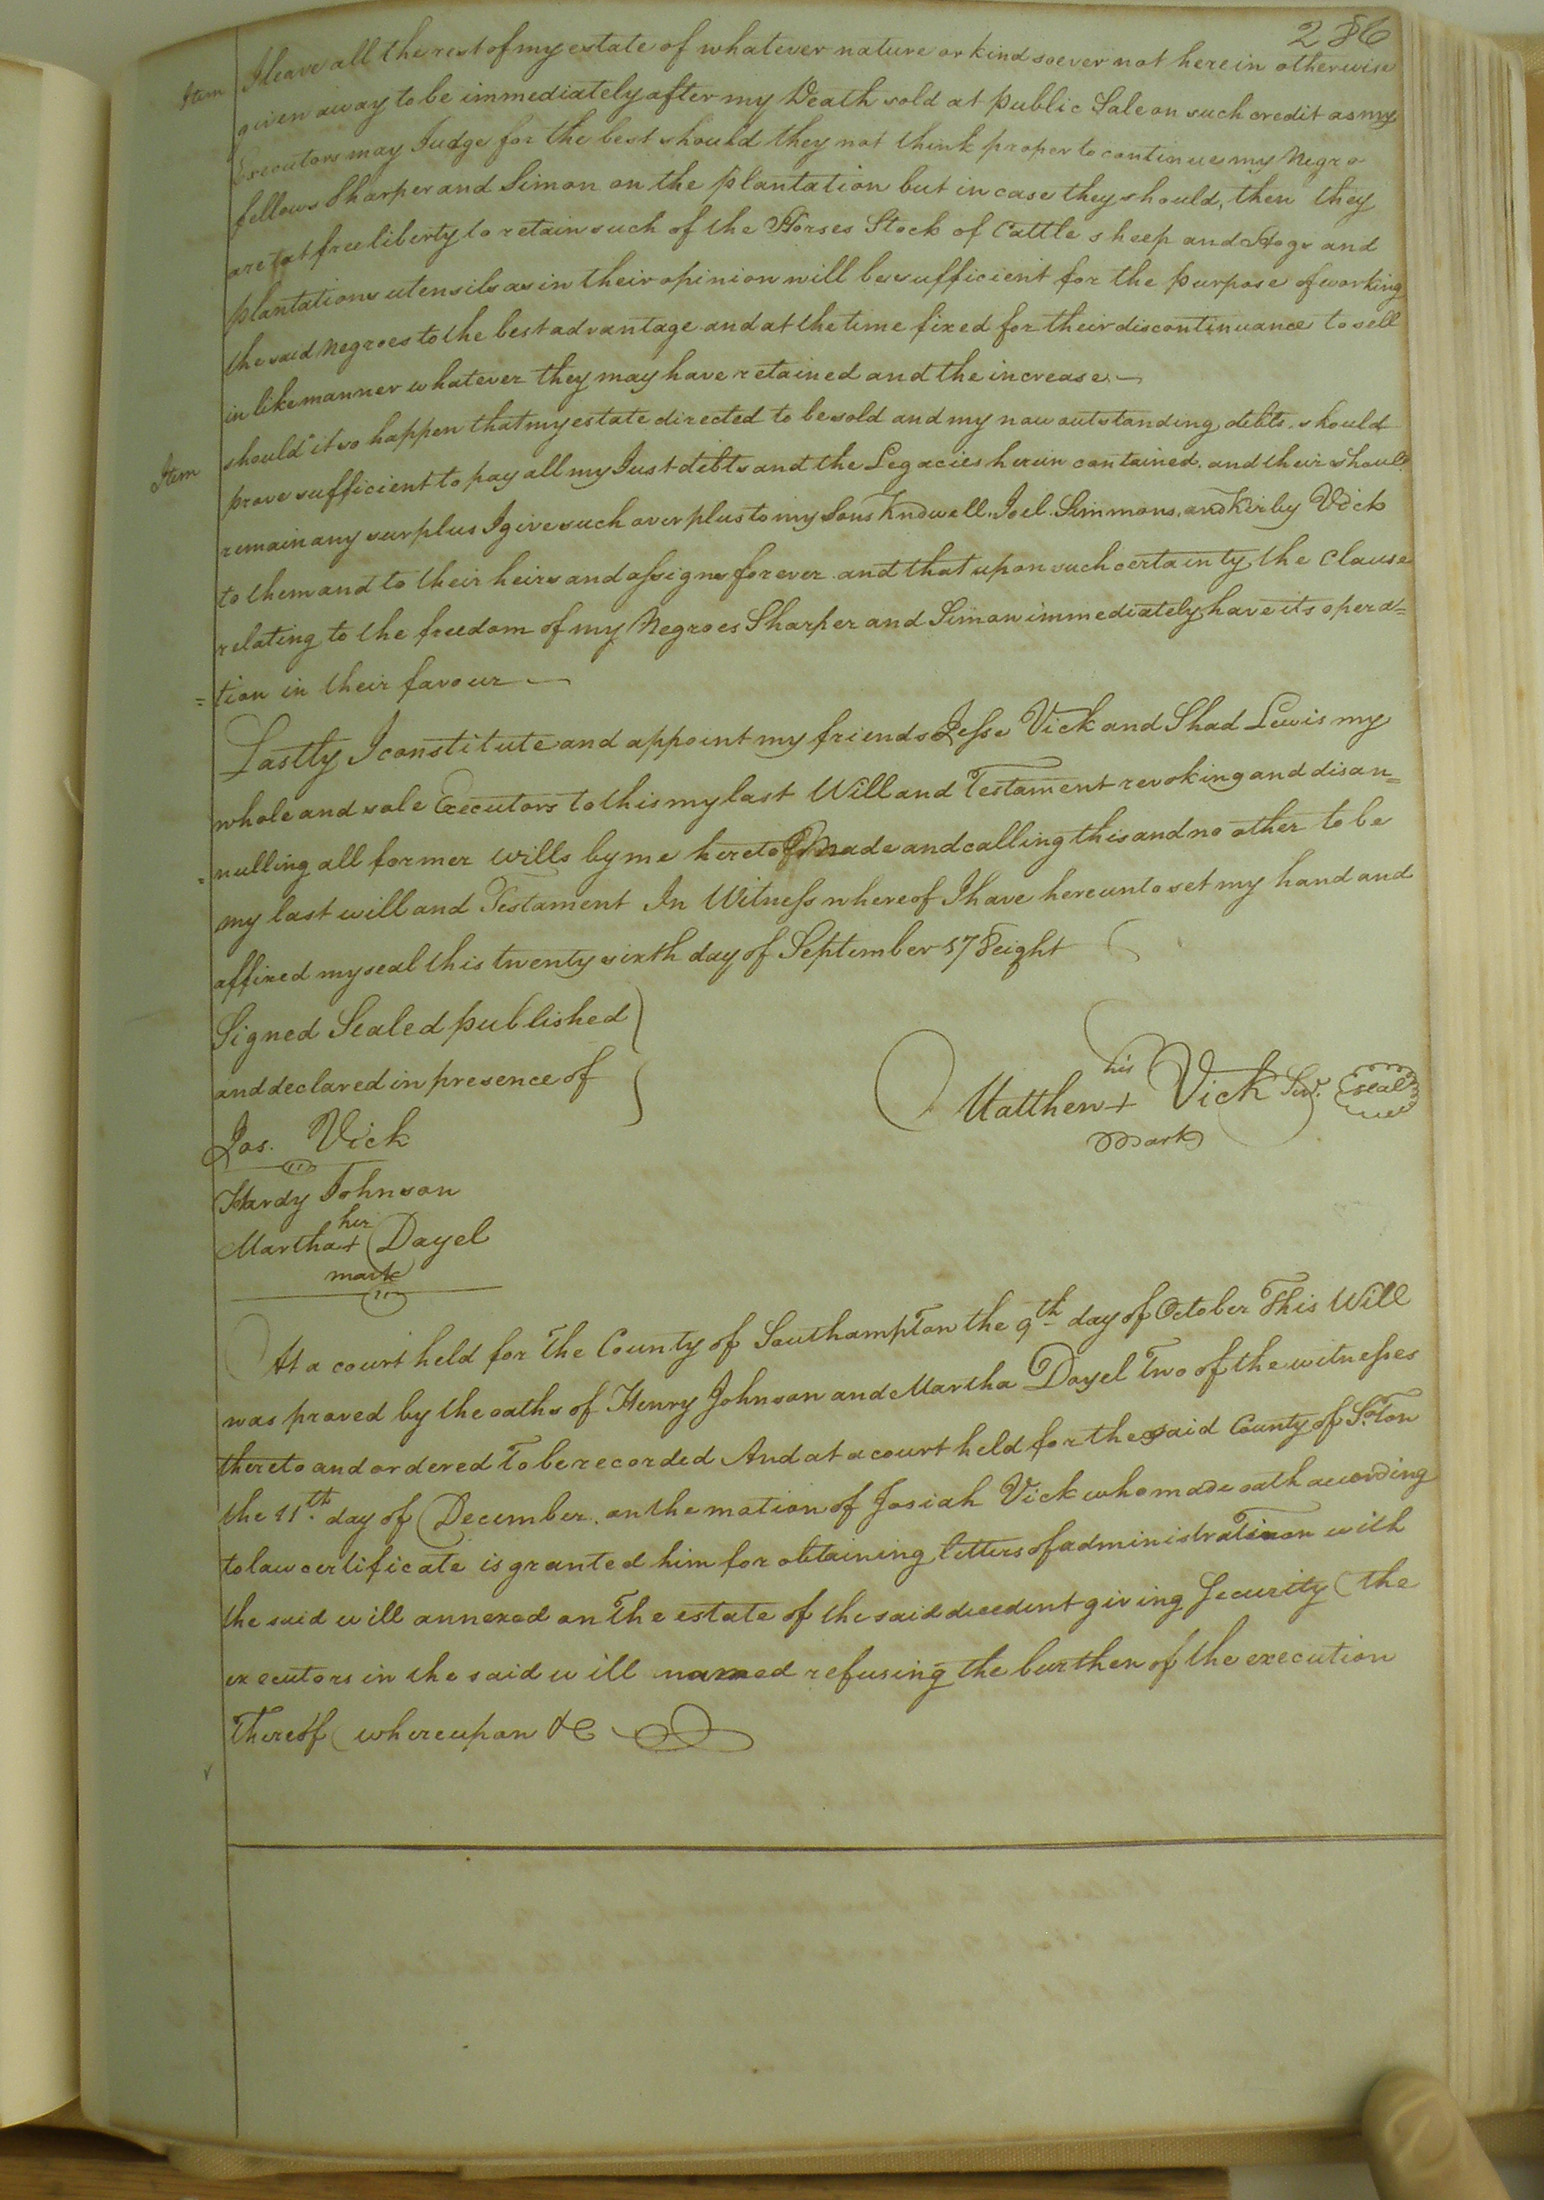 286
Item I leave all the rest of my estate of whatever nature or kind soever not herein otherwise
given away to be immediately after my Death sold at public Sale on such credit as my
Executors may Judge for the best should they not think proper to continue my Negro
fellows Sharper and Simon on the plantation but in case they should, then they
are at free liberty to retain such of the Horses Stock of Cattle sheep and Hogs and
plantations utensils as in their opinion will be sufficient for the purpose of working
the said Negroes to the best advantage and at the time fixed for their discontinuance to sell
in like manner whatever they may have retained and the increase —
Item should it so happen that my estate directed to be sold and my now outstanding debts should
prove sufficient to pay all my Just debts and the Legacies herein contained. and their should
remain any surplus I give such overplus to my Sons Joel. Simmons. and Kirby Vick
to them and to their heirs and assigns forever and that upon such certainty the Clause
relating to the freedom of my Negroes Sharper and Simon immediately have its opera=
=tion in their favour —
Lastly I constitute and appoint my friends Jesse Vick and Shad Lewis my
whole and sole Executors to this my last Will and Testament revoking and disan=
=nulling all former wills by me heretofo made and calling this and no other to be
my last will and Testament In Witness whereof I have hereunto set my hand and
affixed my seal this twenty sixth day of September 178eight
Signed Sealed published
and declared in presence of
his
Matthew + Vick Senr. seal
mark
Jos. Vick
Hardy Johnson
her
Martha + Dayel
mark
At a court held for the County of Southampton the 9th day of October This Will
was proved by the oaths of Henry Johnson and Martha Dayel Two of the witnesses
thereto and ordered to be recorded And at a court held for the said County of So.Ton
the 11th. day of December. on the motion of Josiah Vick who made oath according
to law certificate is granted him for obtaining letters of administration with
the said will annexed on the estate of the said decedent giving Security (the
executors in the said will named refusing the burthen of the execution
thereof (whereupon &c